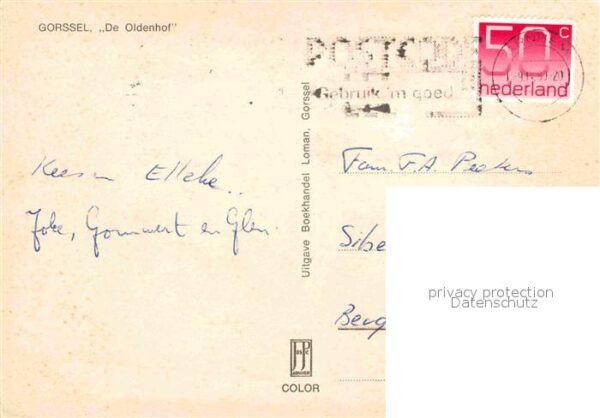 GORSSEL, „De Oldenhof"
POSTCODE
Gebruik 'm goed
50 c
nederland
Kees en Elleke..
Joke, Gommert en Glen.
Uitgave Boekhandel Loman, Gorssel
Fam. F.A. Peeters
Sibe
Berg
privacy protection
Datenschutz
COLOR